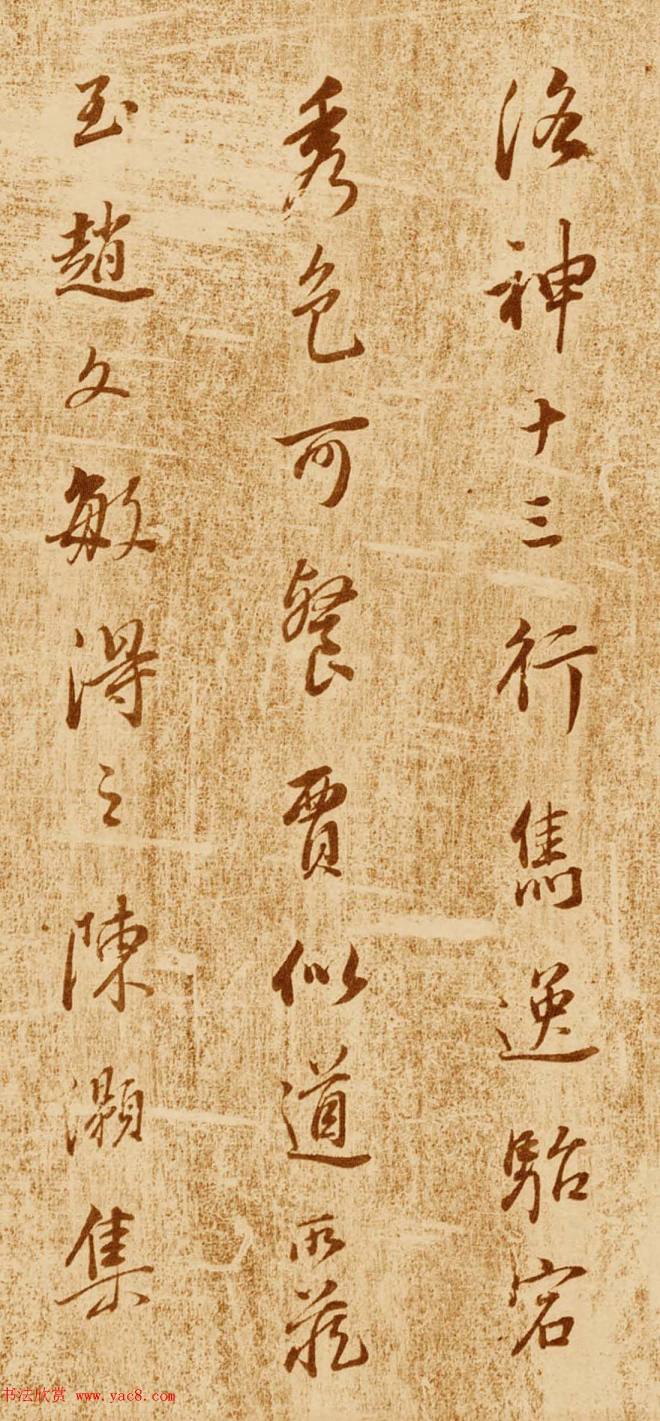 洛神十三行雋逸駘宕
秀色可餐賈似道所藏
玉趙文敏得之陳灝集
书法欣赏 www.yac8.com